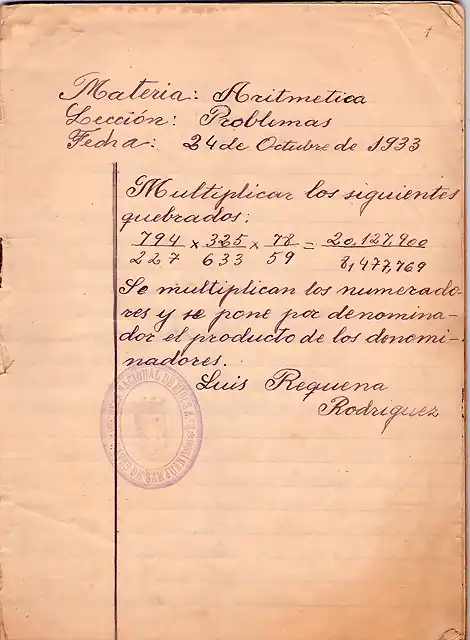 1
Materia: Aritmetica
Lección: Problemas
Fecha: 24 de Octubre de 1933
Multiplicar los siguientes
quebrados:
794/227 x 325/633 x 78/59 = 20,127,900/8,477,769
Se multiplican los numerado-
res y se pone por denomina-
dor el producto de los denomi-
nadores.
Luis Requena
Rodriguez
NACIONAL DE NIÑOS